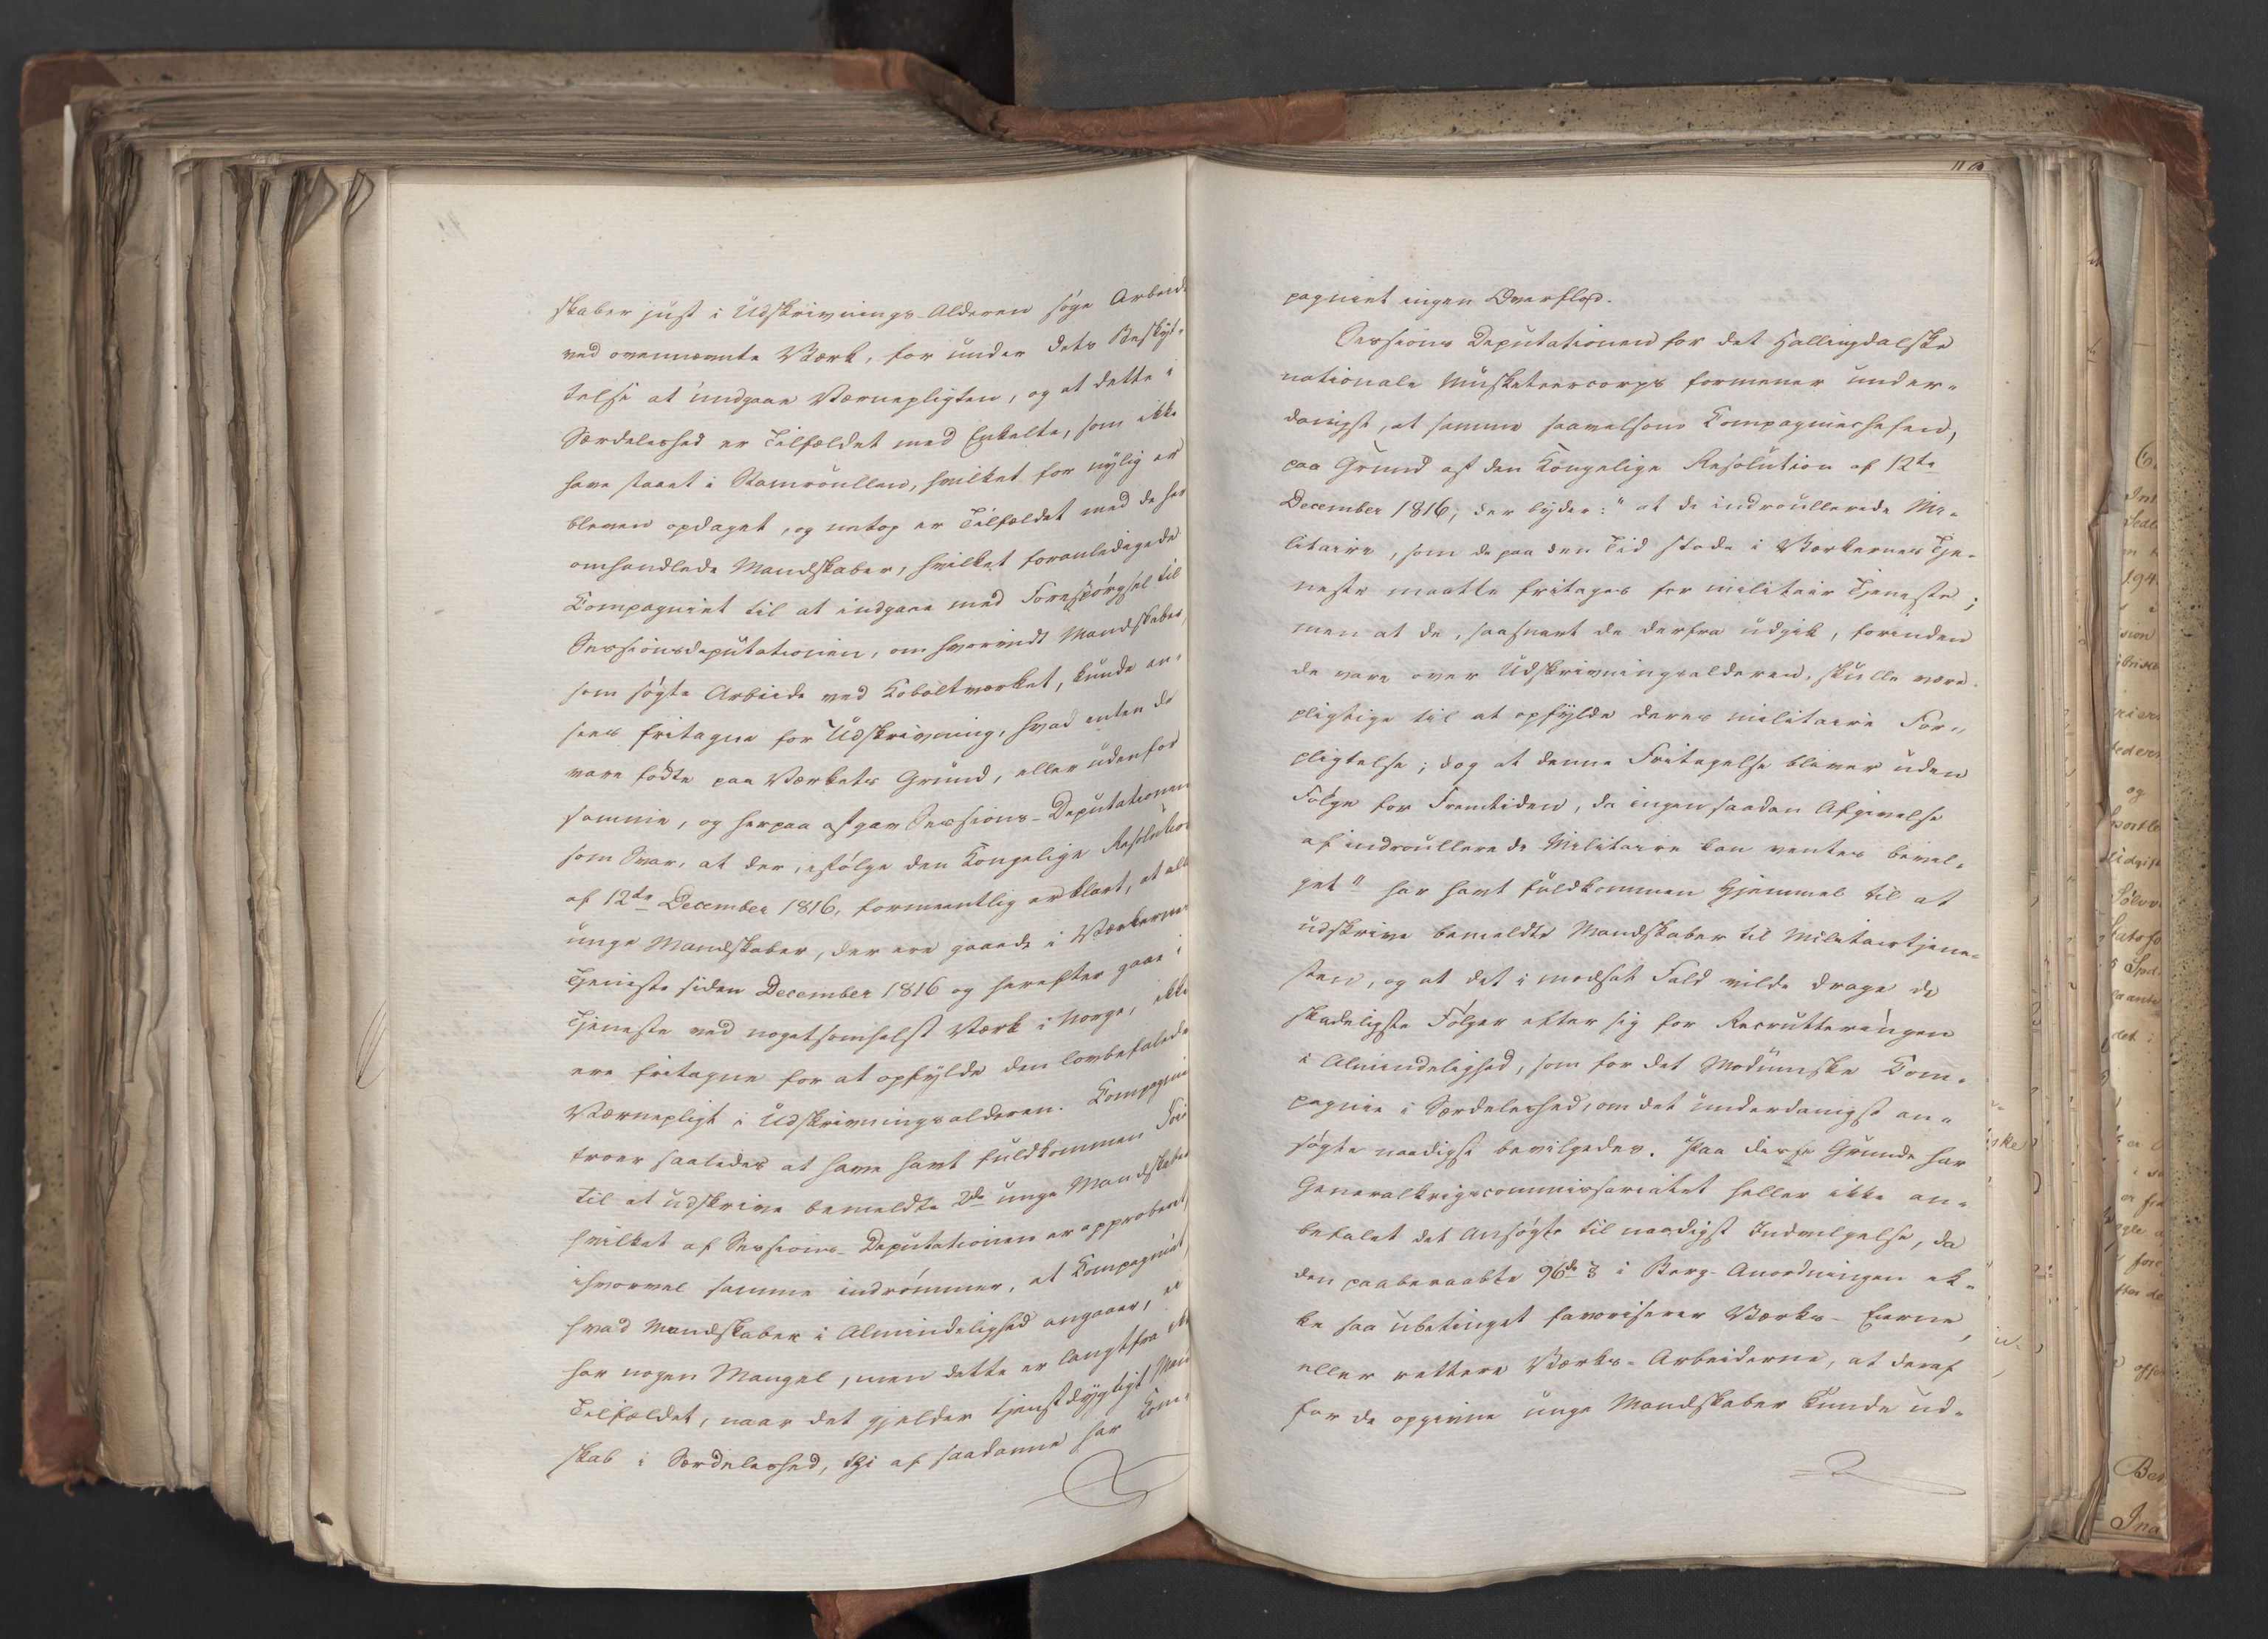 skaber just i Udskrivnings-Alderen søge Arbeide
ved ovennævnte Værk, for under dets Beskyt-
telse at undgaae Værnepligten, og at dette i
Særdeleshed er Tilfældet med Enkelte, som ikke
have staaet i Stamroullen, hvilket for nylig er
bleven opdaget, og netop er Tilfældet med de her
omhandlede Mandskaber, hvilket foranledigede
Compagniet til at indgaae med Forespørgsel til
Sessionsdeputationen, om hvorvidt Mandskaber,
som søgte Arbeide ved Koboltværket, kunde an-
sees fritagne for Udskrivning, hvad enten de
vare fødte paa Værkets Grund, eller udenfor
samme, og herpaa afgav Sessions-Deputationen
som Svar, at der, ifølge den Kongelige Resolution
af 12te December 1816, formeentlig er klart, at alle
unge Mandskaber, der ere gaaede i Værkernes
Tjeneste siden December 1816 og herefter gaae i
Tjeneste ved nogetsomhelst Værk i Norge, ikke
ere fritagne for at opfylde den lovbefalede
Værnepligt i Udskrivningsalderen. Compagniet
troer saaledes at have havt fuldkommen Føie
til at udskrive bemeldte 2de unge Mandskaber
hvilket af Sessions-Deputationen er approberet,
ihvorvel samme indrømmer, at Compagniet,
hvad Mandskaber i Almindelighed angaaer, ei
har nogen Mangel, men dette er langtfra ikke
Tilfældet, naar det gjelder tjenstdygtigt Mand
skab i Særdeleshed, thi af saadanne har Com-
116
pagniet ingen Overflod.
Sessions Deputationen for det Hallingdalske
nationale Musketeercorps formener under-
danigst, at samme saavelsom Compagniechefen,
paa Grund af den Kongelige Resolution af 12te
December 1816, der lyder: "at de indroullerede Mi-
litaire, som de paa den Tid stode i Værkernes Tje-
neste maatte fritages for militair Tjeneste;
men at de, saasnart de derfra udgik, forinden
de vare over Udskrivningsalderen, skulle være
pligtige til at opfylde deres militaire For-
pligtelse; dog at denne Fritagelse bliver uden
Følge for Fremtiden, da ingen saadan Afgivelse
af indroullerede Militaire kan ventes bevil-
get" har havt fuldkommen Hjemmel til at
udskrive bemeldte Mandskaber til Militairtjene-
sten, og at det i modsat Fald vilde drage de
skadeligste Følger efter sig for Recrutteringen
i Almindelighed, som for det Modumske Com-
pagnie i Særdeleshed, om det underdanigst an-
søgte naadigst bevilgedes. Paa disse Grunde har
Generalkrigscommissariatet heller ikke an-
befalet det Ansøgte til naadigst Indvilgelse, da
den paaberaabte 96de § i Berg-Anordningen ik-
ke saa ubetinget favoriserer Værks-Eierne,
eller rettere Værks-Arbeiderne, at deraf
for de opgivne unge Mandskaber kunde ud-